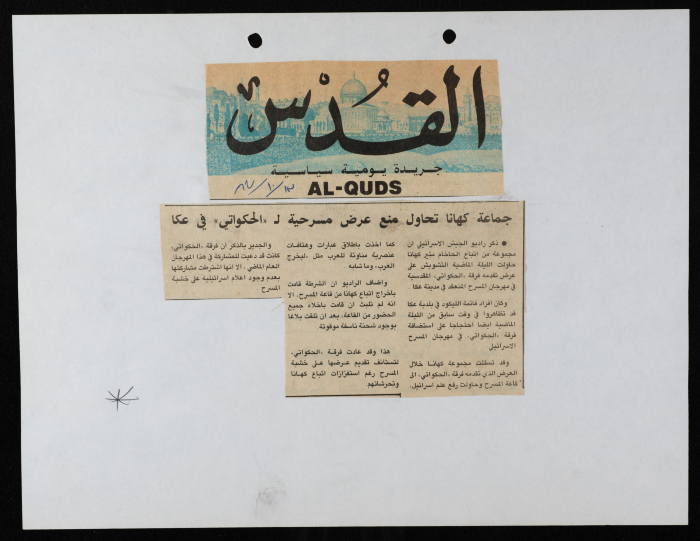 القدس
جريدة يومية سياسية
AL-QUDS
جماعة كهانا تحاول منع عرض مسرحية لـ «الحكواتي» في عكا
● ذكر راديو الجيش الاسرائيلي ان
مجموعة من اتباع الحاخام مئير كهانا
حاولت الليلة الماضية التشويش على
عرض تقدمه فرقة «الحكواتي» المقدسية
في مهرجان المسرح المنعقد في مدينة عكا.
وكان افراد قائمة الليكود في بلدية عكا
قد تظاهروا في وقت سابق من الليلة
الماضية ايضا احتجاجا على استضافة
فرقة «الحكواتي» في مهرجان المسرح
الاسرائيلي
وقد تسللت مجموعة كهانا خلال
العرض الذي تقدمه فرقة «الحكواتي» الى
قاعة المسرح وحاولت رفع علم اسرائيل.
كما اخذت باطلاق عبارات وهتافات
عنصرية مناوئة للعرب مثل «ليخرج
العرب» وما شابه
واضاف الراديو ان الشرطة قامت
باخراج اتباع كهانا من قاعة المسرح، الا
انه لم تلبث ان قامت باخلاء جميع
الحضور من القاعة، بعد ان تلقت بلاغا
بوجود شحنة ناسفة موقوتة.
هذا وقد عادت فرقة «الحكواتي»
لتستانف تقديم عرضها على خشبة
المسرح رغم استفزازات اتباع كهانا
وتحرشاتهم
والجدير بالذكر ان فرقة «الحكواتي»
كانت قد دعيت للمشاركة في هذا المهرجان
العام الماضي، الا انها اشترطت مشاركتها
بعدم وجود اعلام اسرائيلية على خشبة
المسرح